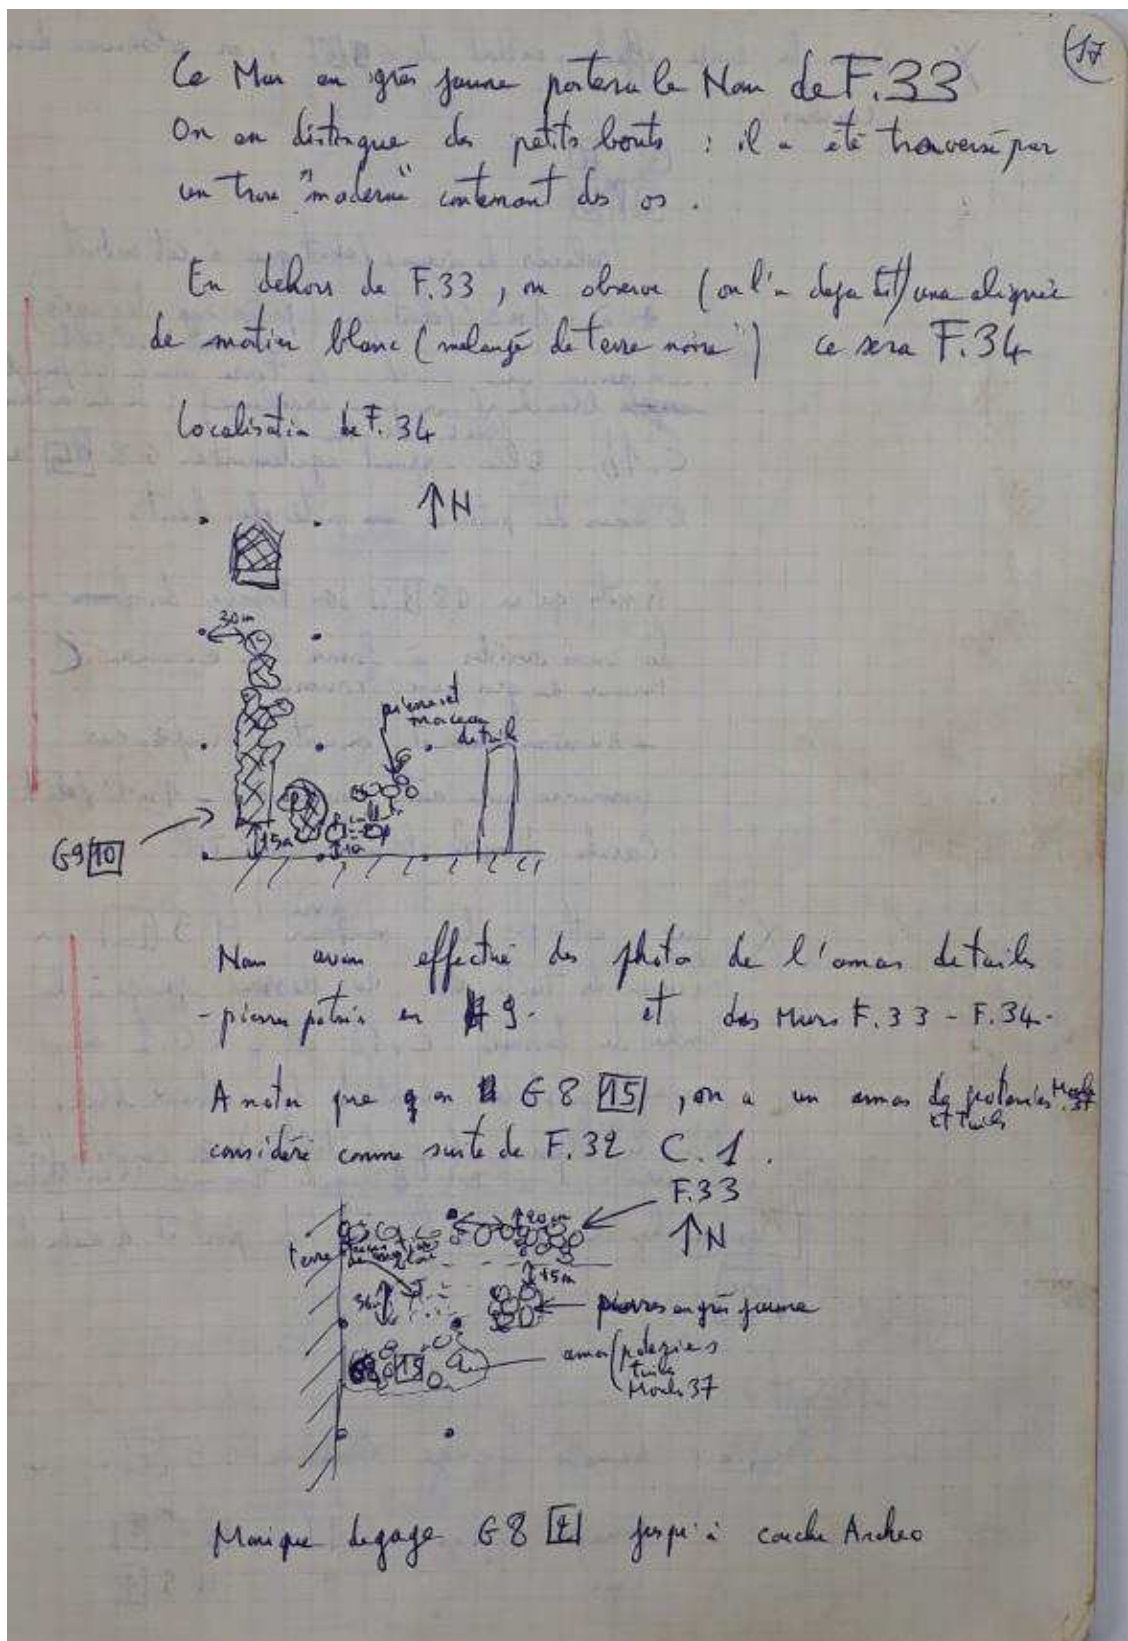 17
Ce Mur en grès jaune portera le Nom de F.33
On en distingue des petits bouts : il a été traversé par
un trou "moderne" contenant des os.
En dehors de F.33, on observe (on l'a déjà dit) une alignée
de mortier blanc (mélangé de terre noire") ce sera F.34
Localisation de F.34
↑N
30cm
pierres et
morceau
de tuile
15cm
G9 10
Nous avons effectué des photos de l'amas de tuiles
- pierres poteries en 9 - et des Murs F.33 - F.34 -
A noter que en G8 15, on a un amas de poteries Moule 37
et tuiles
considéré comme suite de F.32 C.1.
F.33
20cm
↑N
terre
15cm
pierres en grès jaune
15
amas poteries
tuiles
Moule 37
Monique dégage G8 jusqu'à couche Archeo